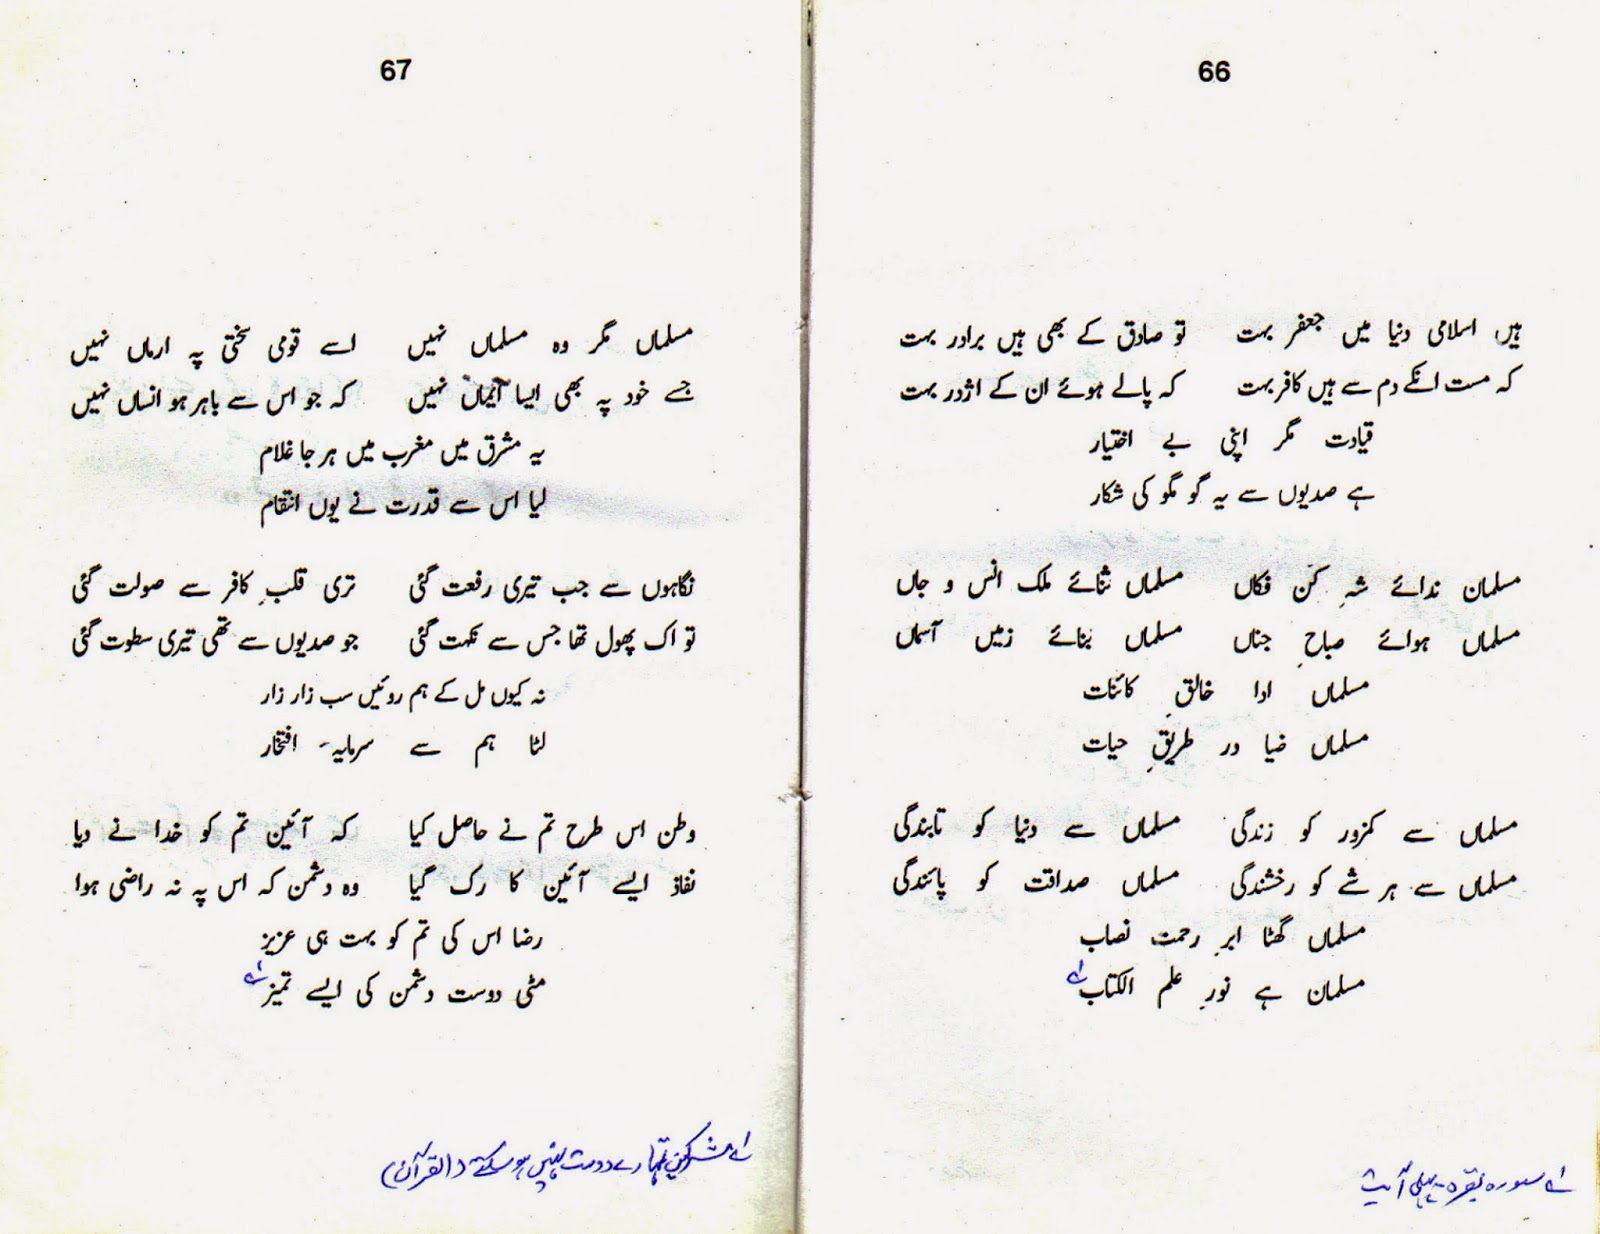 66
ہیں اسلامی دنیا میں جعفر بہت تو صادق کے بھی ہیں برادر بہت
کہ مست انکے دم سے ہیں کافر بہت کہ پالے ہوئے ان کے اژدر بہت
قیادت مگر اپنی بے اختیار
ہے صدیوں سے یہ گو مگو کی شکار
مسلمان ندائے شہِ کن فکاں مسلماں ثنائے ملک انس و جاں
مسلماں ہوائے صباحِ جناں مسلماں بنائے زمیں آسماں
مسلماں ادا خالقِ کائنات
مسلماں ضیا در طریقِ حیات
مسلماں سے کمزور کو زندگی مسلماں سے دنیا کو تابندگی
مسلماں سے ہر شے کو رخشندگی مسلماں صداقت کو پائندگی
مسلماں گھٹا ابرِ رحمت نصاب
مسلمان ہے نورِ علم الکتاب ؎۱
؎۱ سورہ بقرہ - پہلی آیت
67
مسلماں مگر وہ مسلماں نہیں اسے قومی سختی پہ ارماں نہیں
جسے خود پہ بھی ایسا ایماں نہیں کہ جو اس سے باہر ہو انساں نہیں
یہ مشرق میں مغرب میں ہر جا غلام
لیا اس سے قدرت نے یوں انتقام
نگاہوں سے جب تیری رفعت گئی تری قلبِ کافر سے صولت گئی
تو اک پھول تھا جس سے نکہت گئی جو صدیوں سے تھی تیری سطوت گئی
نہ کیوں مل کے ہم روئیں سب زار زار
لٹا ہم سے سرمایہَ افتخار
وطن اس طرح تم نے حاصل کیا کہ آئین تم کو خدا نے دیا
نفاذ ایسے آئین کا رک گیا وہ دشمن کہ اس پہ نہ راضی ہوا
رضا اس کی تم کو بہت ہی عزیز
مٹی دوست دشمن کی ایسے تمیز ؎۱
؎۱ مشرکین تمہارے دوست نہیں ہو سکتے (القرآن)